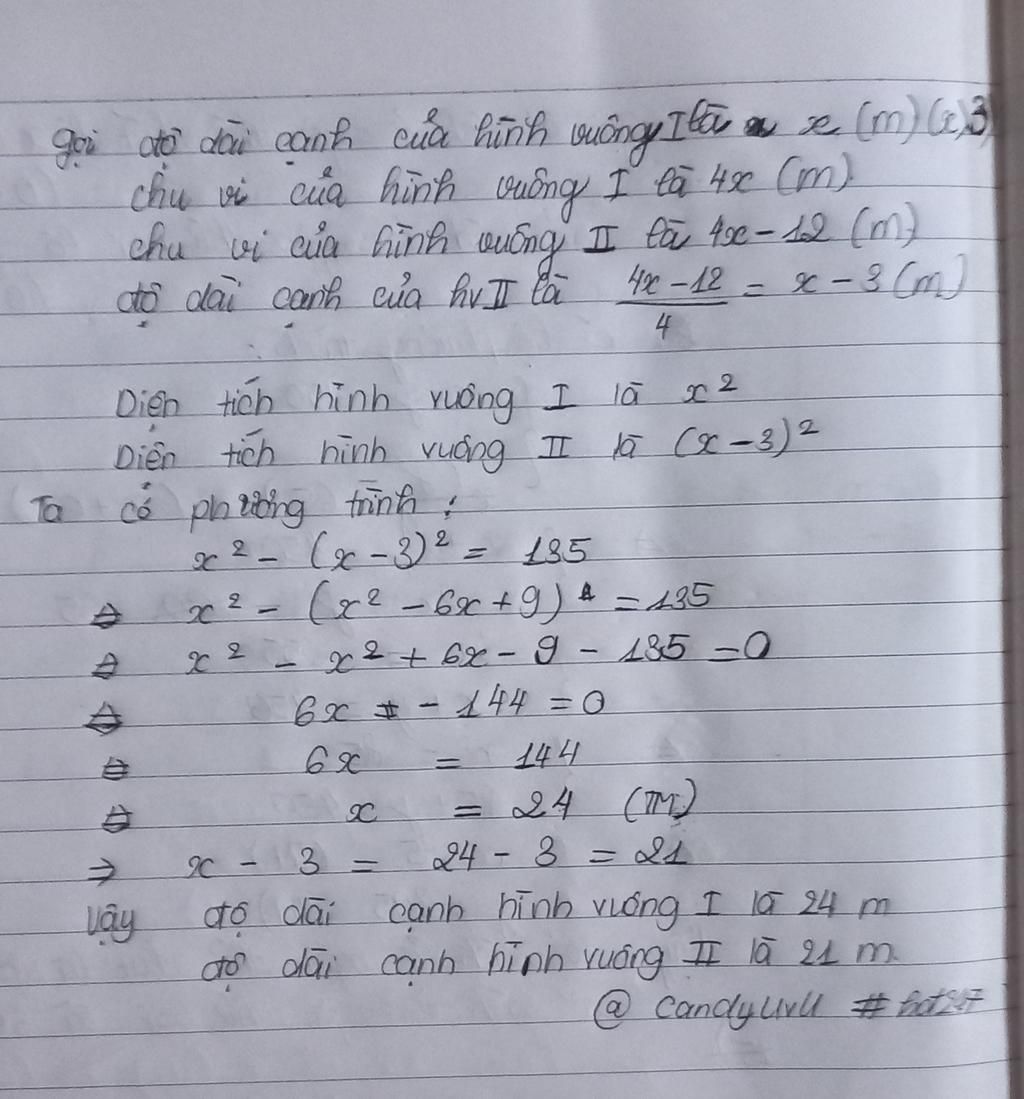 gọi độ dài cạnh của hình vuông I là x (m) (x>3)
chu vi của hình vuông I là 4x (m)
chu vi của hình vuông II là 4x - 12 (m)
độ dài cạnh của hv II là (4x - 12)/4 = x - 3 (m)
Diện tích hình vuông I là x²
Diện tích hình vuông II là (x - 3)²
Ta có phương trình :
x² - (x - 3)² = 135
⇔ x² - (x² - 6x + 9) = 135
⇔ x² - x² + 6x - 9 - 135 = 0
⇔ 6x - 144 = 0
⇔ 6x = 144
⇔ x = 24 (TM)
⇒ x - 3 = 24 - 3 = 21
Vậy độ dài cạnh hình vuông I là 24 m
độ dài cạnh hình vuông II là 21 m
@ candyuvu